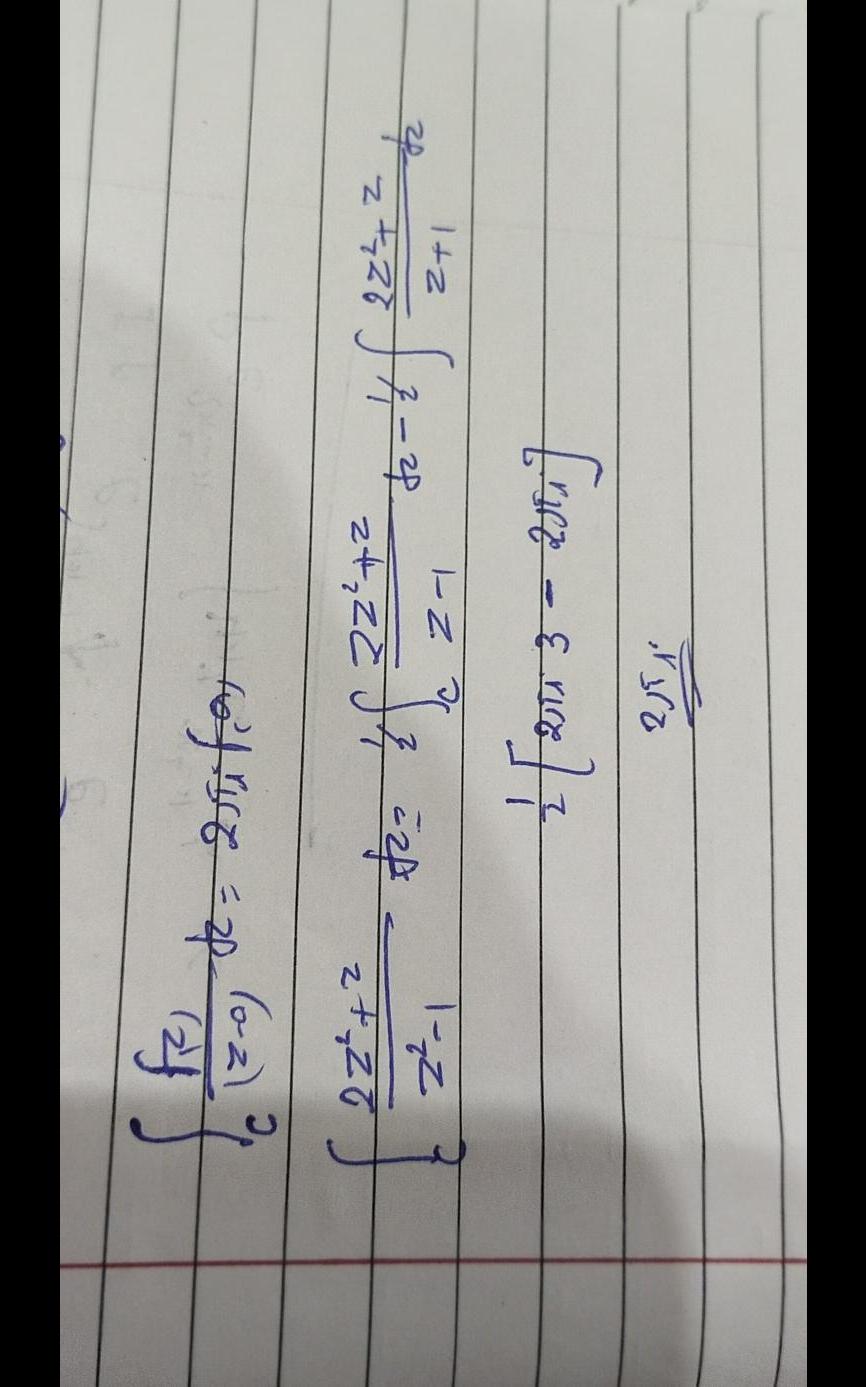 ∫_C f(z)/(z-a) dz = 2πi f(a)
∫_C (2z²+z)/(z²-1) dz = 1/2 ∫_C (2z²+z)/(z-1) dz - 1/2 ∫ (2z²+z)/(z+1) dz
1/2 [2πi 3 - 2πi]
2πi